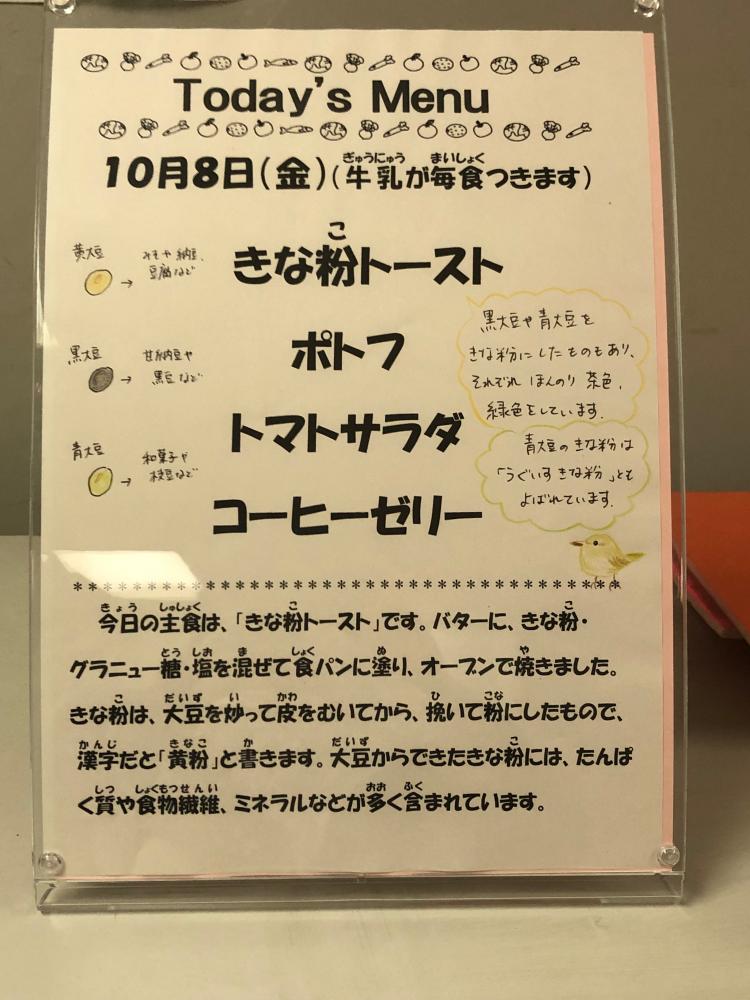 Today's Menu
10月8日(金)(牛乳が毎食つきます)
きな粉トースト
ポトフ
トマトサラダ
コーヒーゼリー
黄大豆 → みそや納豆、
豆腐など
黒大豆 → 甘納豆や
黒豆など
青大豆 → 和菓子や
枝豆など
黒大豆や青大豆を
きな粉にしたものもあり、
それぞれほんのり茶色、
緑色をしています。
青大豆のきな粉は
「うぐいすきな粉」とも
よばれています。
************************************
今日の主食は、「きな粉トースト」です。バターに、きな粉・
グラニュー糖・塩を混ぜて食パンに塗り、オーブンで焼きました。
きな粉は、大豆を炒って皮をむいてから、挽いて粉にしたもので、
漢字だと「黄粉」と書きます。大豆からできたきな粉には、たんぱ
く質や食物繊維、ミネラルなどが多く含まれています。